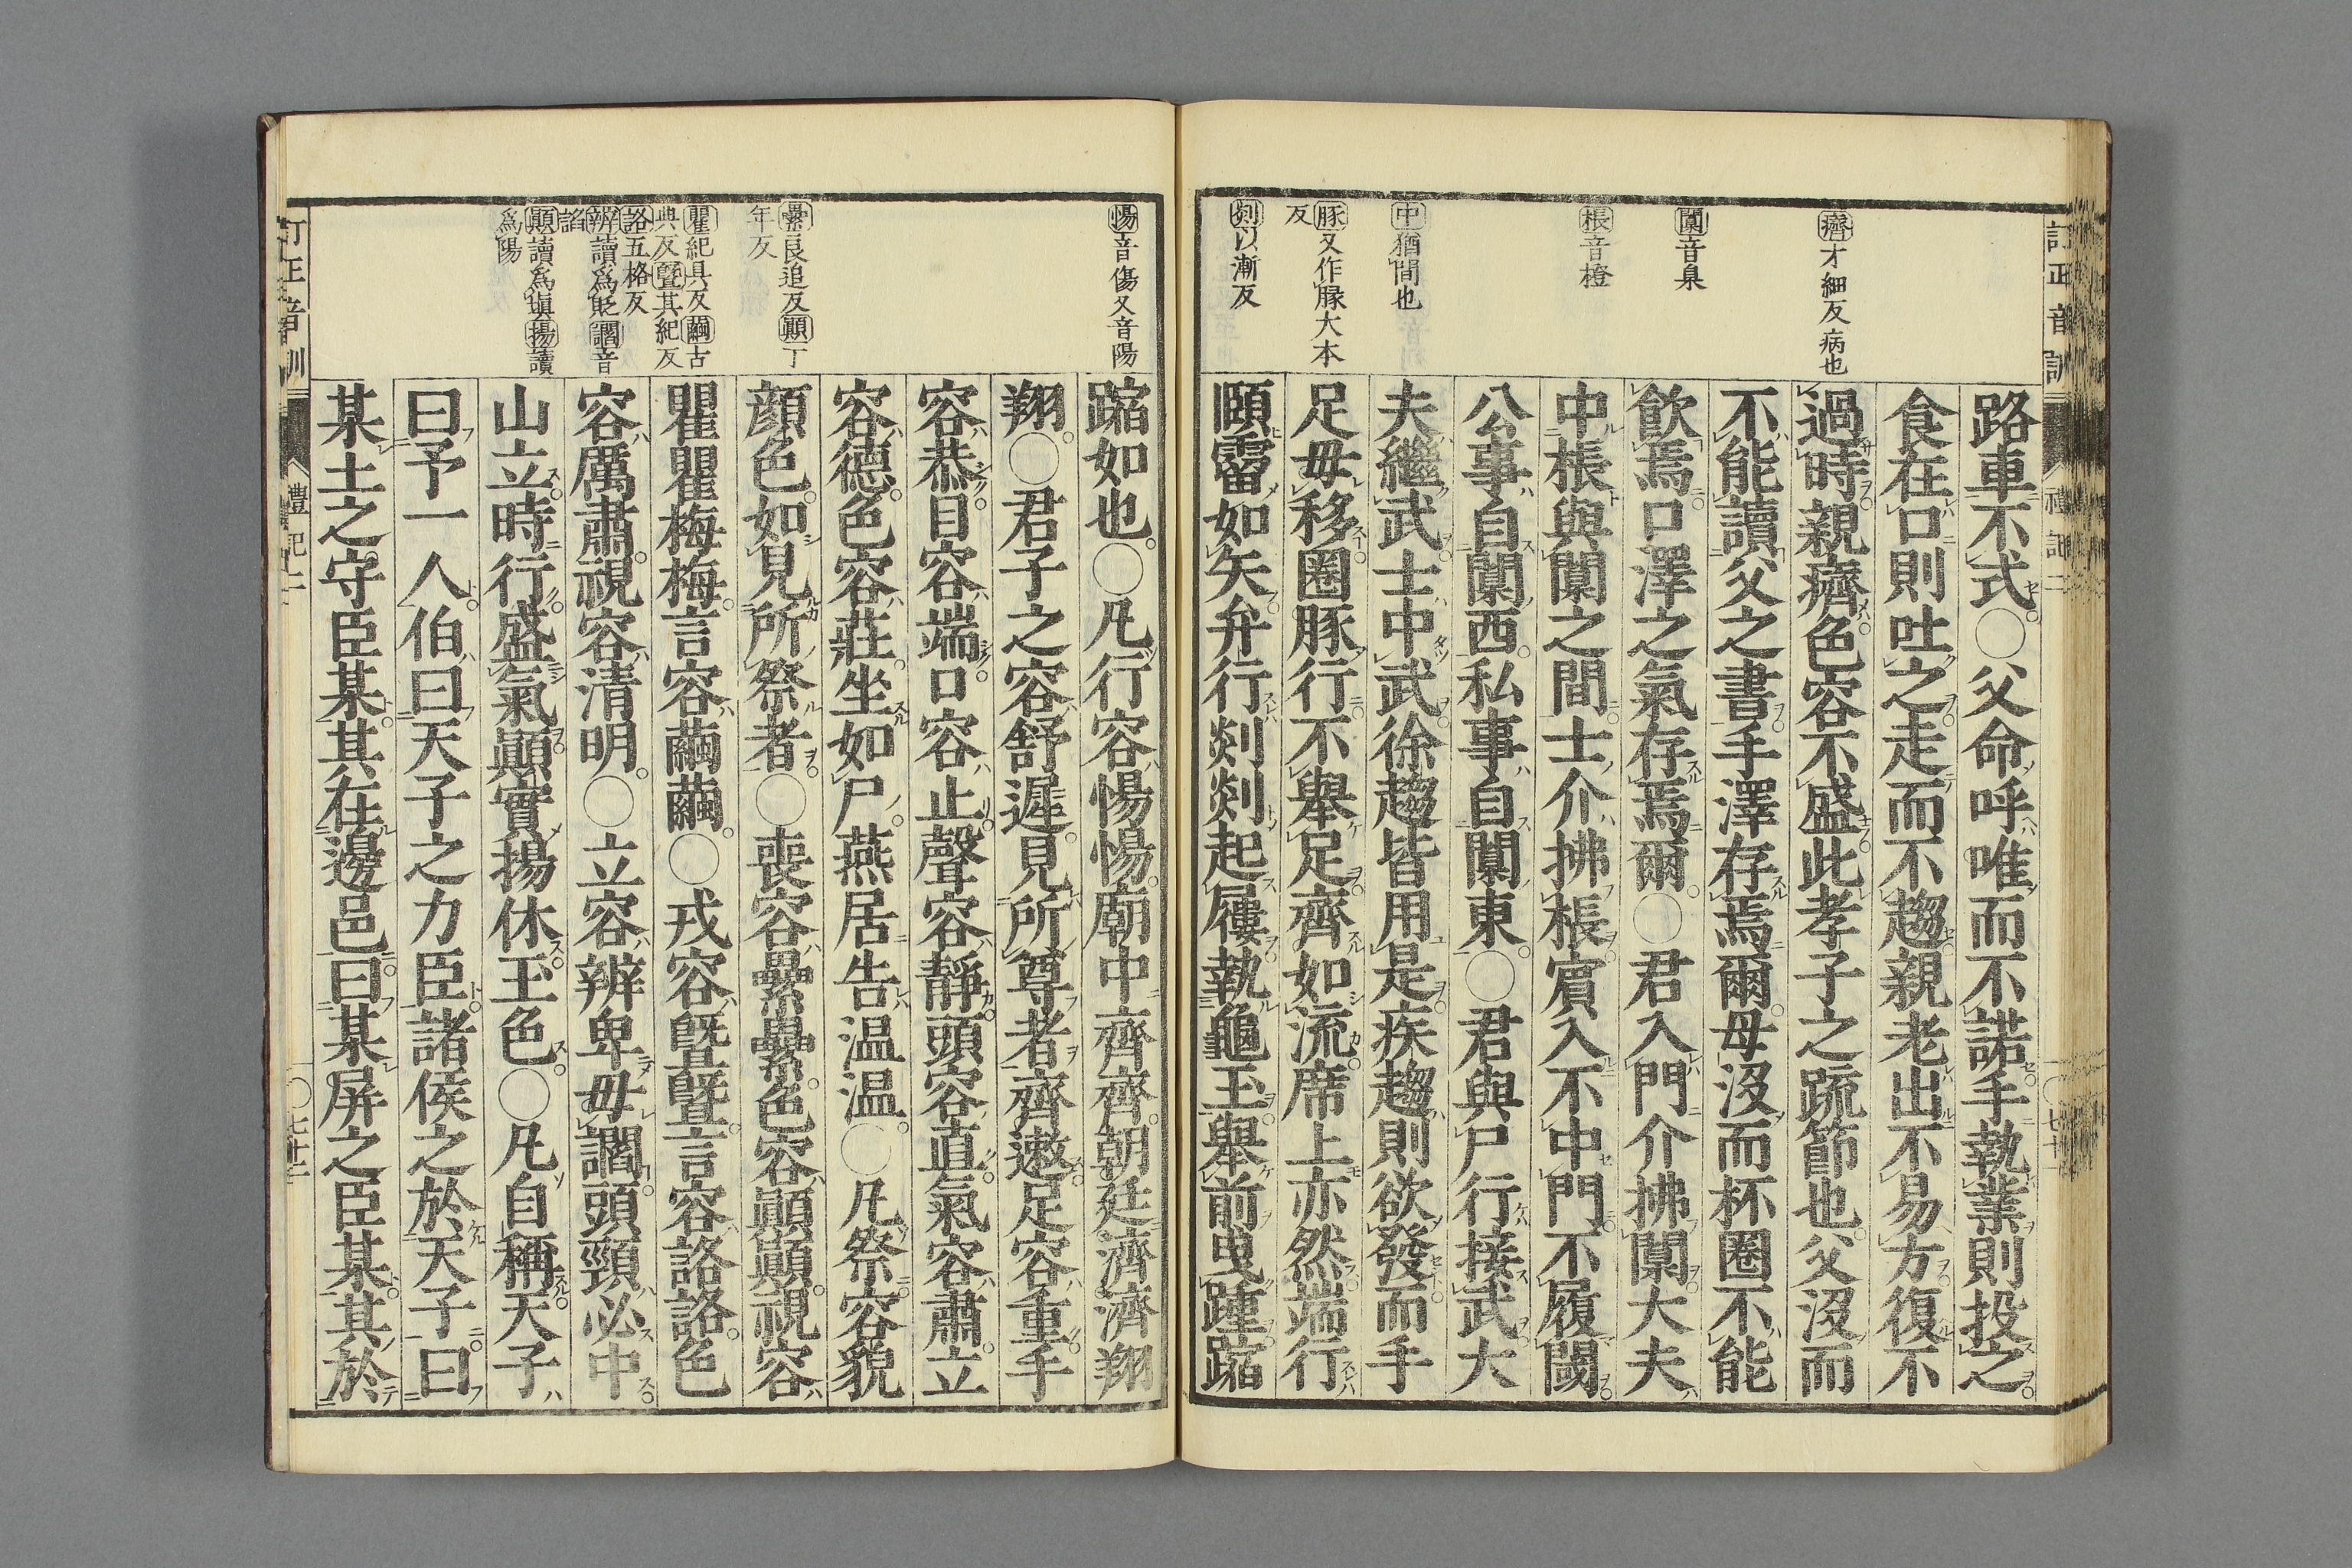 訂正音訓
禮記二
七十一
癠才細反病也
闑音臬
棖音橙
中猶間也
豚又作腞大本
反
剡以漸反
路車不式○父命呼唯而不諾手執業則投之
食在口則吐之走而不趨親老出不易方復不
過時親癠色容不盛此孝子之疏節也父沒而
不能讀父之書手澤存焉爾母沒而杯圈不能
飲焉口澤之氣存焉爾○君入門介拂闑大夫
中棖與闑之間士介拂棖賔入不中門不履閾
公事自闑西私事自闑東○君與尸行接武大
夫繼武士中武徐趨皆用是疾趨則欲發而手
足毋移圈豚行不舉足齊如流席上亦然端行
頤霤如矢弁行剡剡起屨執龜玉舉前曳踵蹜
惕音傷又音陽
纍良追反顚丁
年反
瞿紀具反繭古
典反曁其紀反
詻五格反
辨讀爲貶讇音
諂
顚讀爲塡揚讀
爲陽
蹜如也○凡行容惕惕廟中齊齊朝廷濟濟翔
翔○君子之容舒遲見所尊者齊遬足容重手
容恭目容端口容止聲容靜頭容直氣容肅立
容德色容莊坐如尸燕居告温温○凡祭容貌
顔色如見所祭者○喪容纍纍色容顚顚視容
瞿瞿梅梅言容繭繭○戎容曁曁言容詻詻色
容厲肅視容清明○立容辨卑毋讇頭頸必中
山立時行盛氣顚實揚休玉色○凡自稱天子
曰予一人伯曰天子之力臣諸侯之於天子曰
某土之守臣某其在邊邑曰某屏之臣某其於
訂正音訓
禮記二
七十二